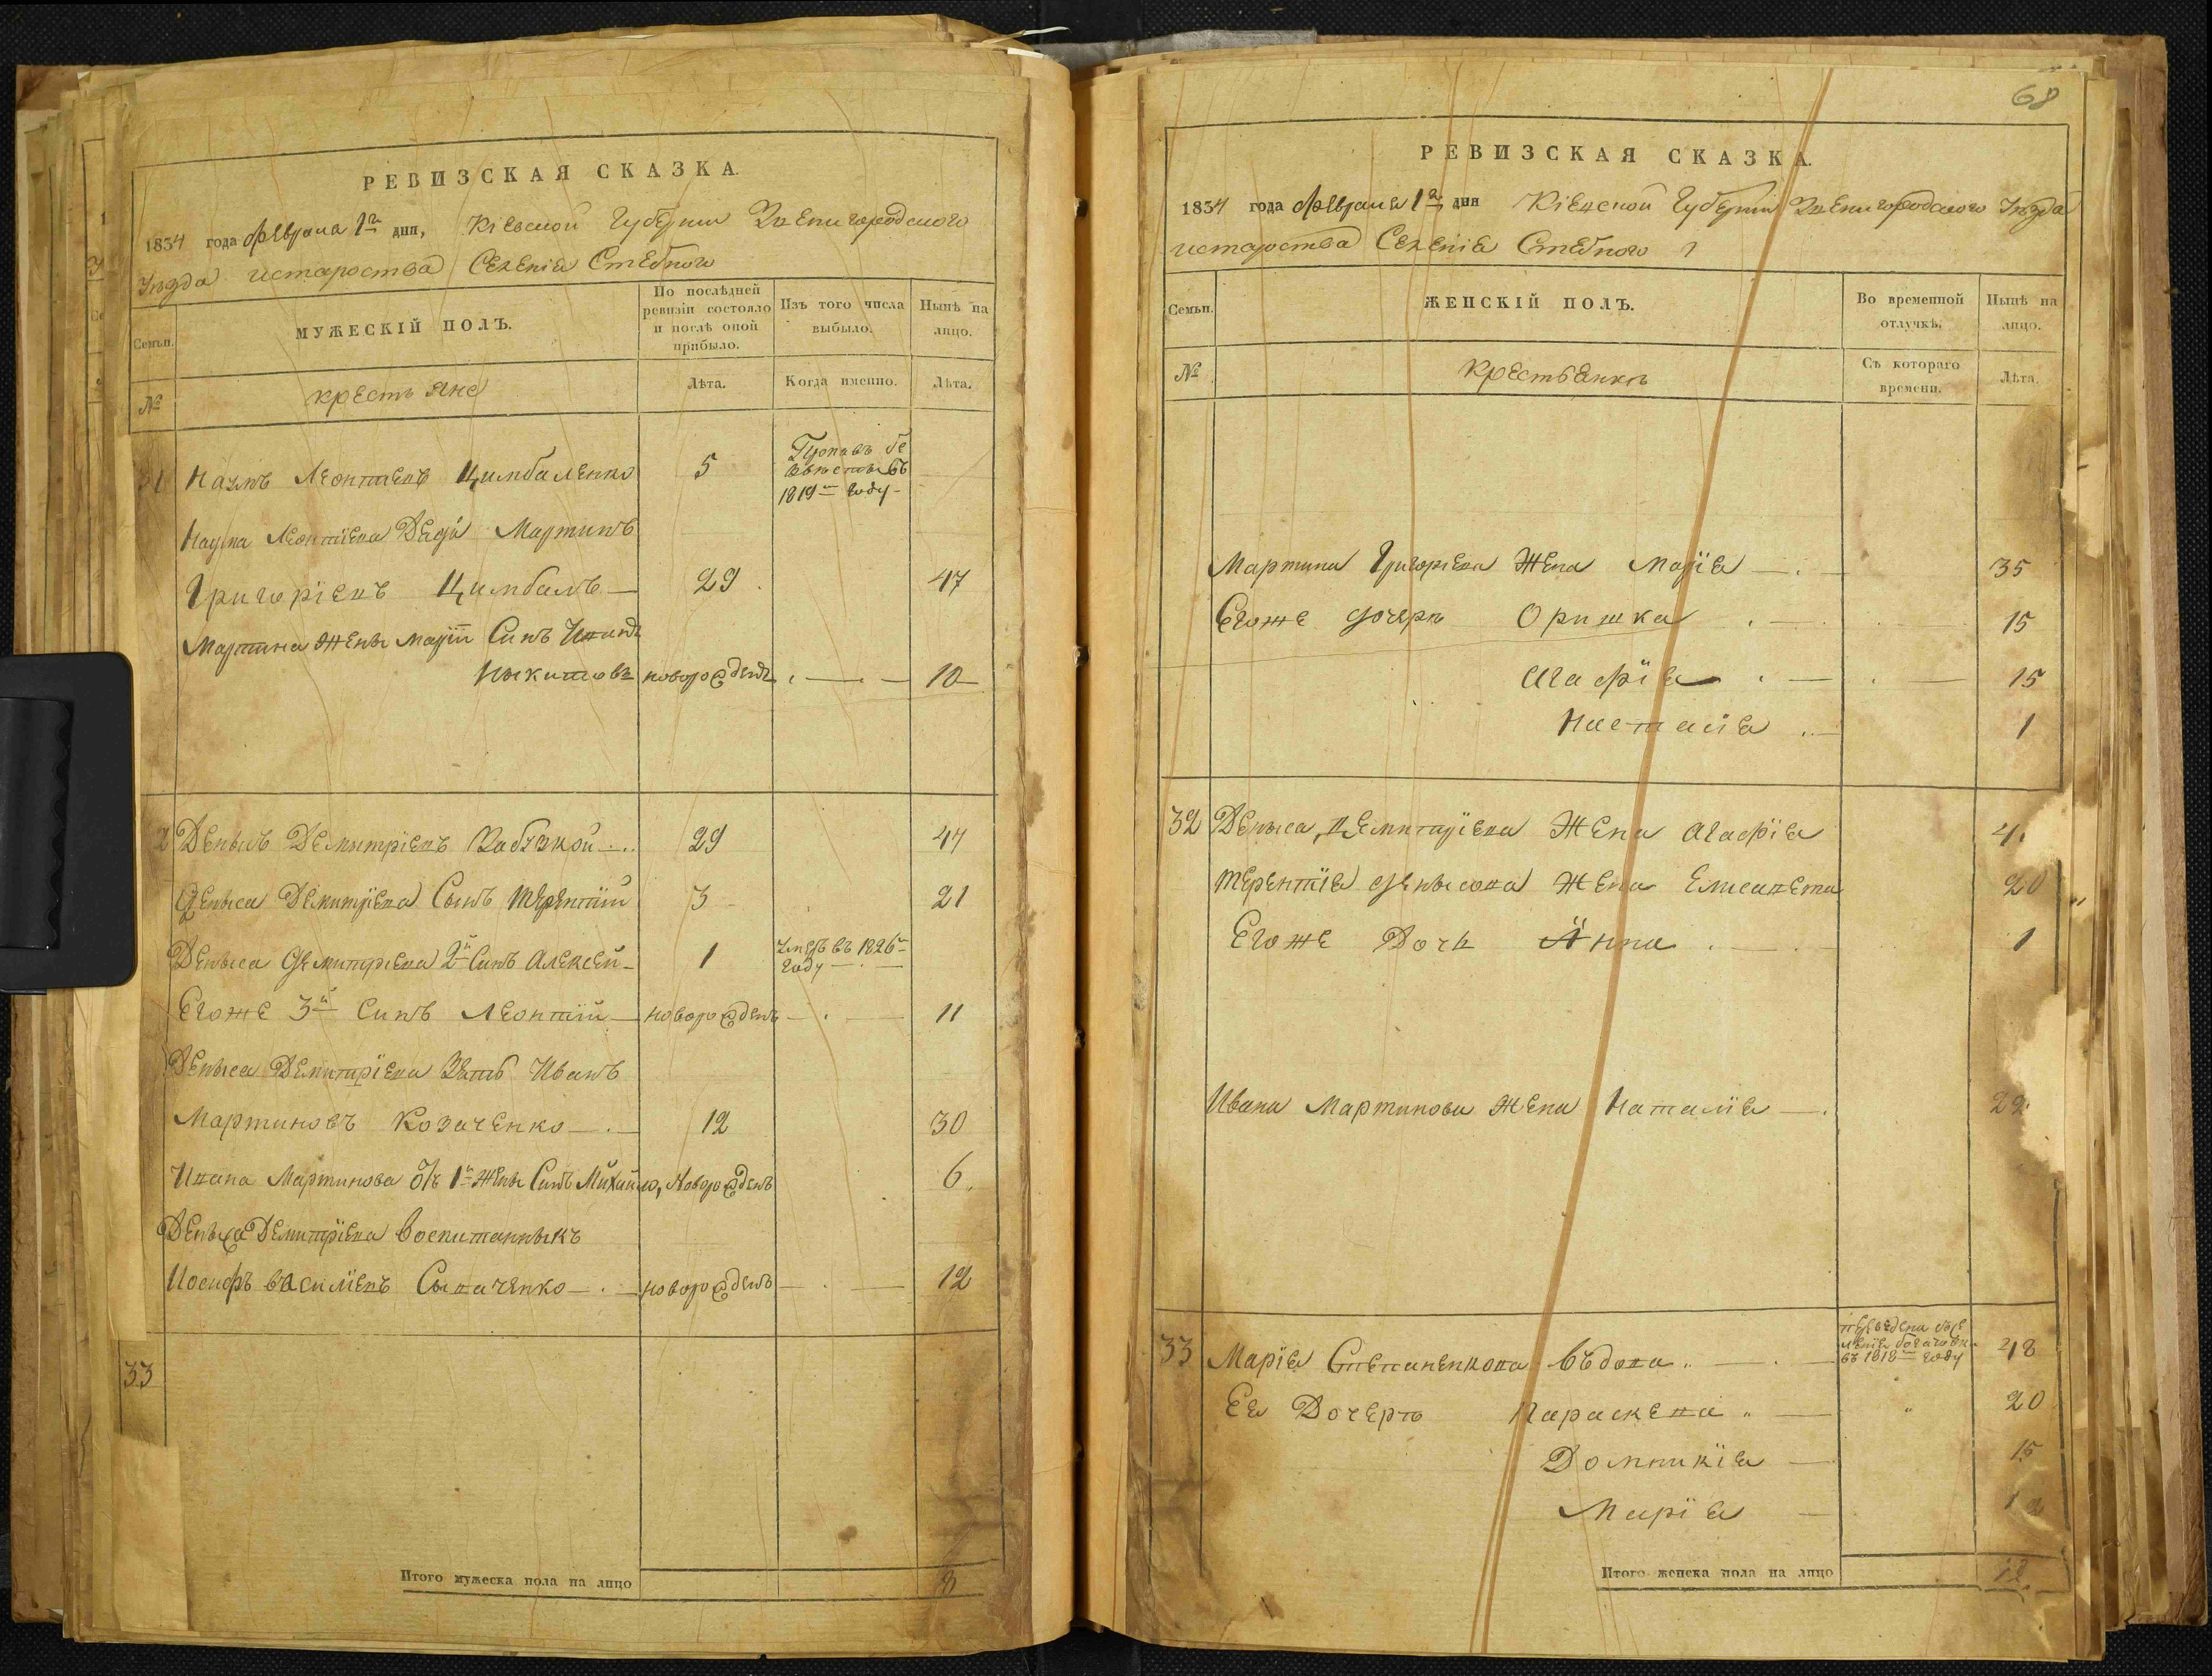 РЕВИЗСКАЯ СКАЗКА.
1834 года февраля 1го дня, Кіевской Губерніи Звенигородского
Уезда истароства Селенія Стебного
Семьи.
МУЖЕСКІЙ ПОЛЪ.
По послѣдней ревизіи состояло и послѣ оной прибыло.
Изъ того числа выбыло.
Нынѣ на лицо.
№
крестьяне
Лѣта.
Когда именно.
Лѣта.
31 Наумъ Леонтиевъ Цимбаленко 5
1819м году
Наума Леонтиева Дядя Мартинъ
Григоріевъ Цимбалъ 29 47
Мартина жены Маріи Синъ
Никитовъ новорожденъ 10
2 Денысъ Демитріевъ 29 47
Деныса Демитріева Сынъ Терентій 3 21
Деныса Демитріева 2й Синъ Алексей 1 Умеръ въ 1826м году
Егоже 3й Синъ Леонтій новорожденъ 11
Деныса Демитріева Зять Иванъ
Мартиновъ Козаченко 12 30
Ивана Мартинова отъ 1й жены Синъ Михайло, новорожденъ 6
Деныса Демитріева воспитанныкъ
Иосифъ василіевъ новорожденъ 12
33
Итого мужеска пола на лицо 8
68
РЕВИЗСКАЯ СКАЗКА.
1834 года февраля 1го дня Кіевской Губерніи Звенигородского Уезда
истароства Селенія Стебного
Семьи.
ЖЕНСКІЙ ПОЛЪ.
Во временной отлучкѣ.
Нынѣ на лицо.
№
крестьянки
Съ котораго времени.
Лѣта.
Мартина Григоріева Жена Марія 35
Егоже дочеры Оришка 15
Агафія 15
Наталія 1
32 Деныса Демитріева Жена Агафія
Терентія Денысова Жена Елисавета 20
Егоже Дочь Анна 1
Ивана Мартинова жена Наталія
33 Марія Степаненкова въдова въ 1818м году 48
Ея Дочеры Параскева " 20
Домникія 15
Марія
Итого женска пола на лицо 12